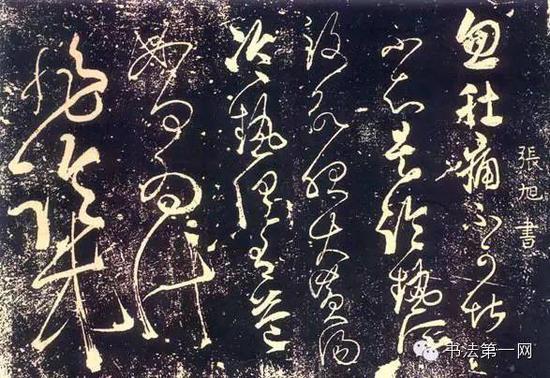 張旭書
忽肚痛不可堪
不知是冷熱所
致欲服大黃湯
冷熱俱有益
如何為計
非臨床
书法第一网